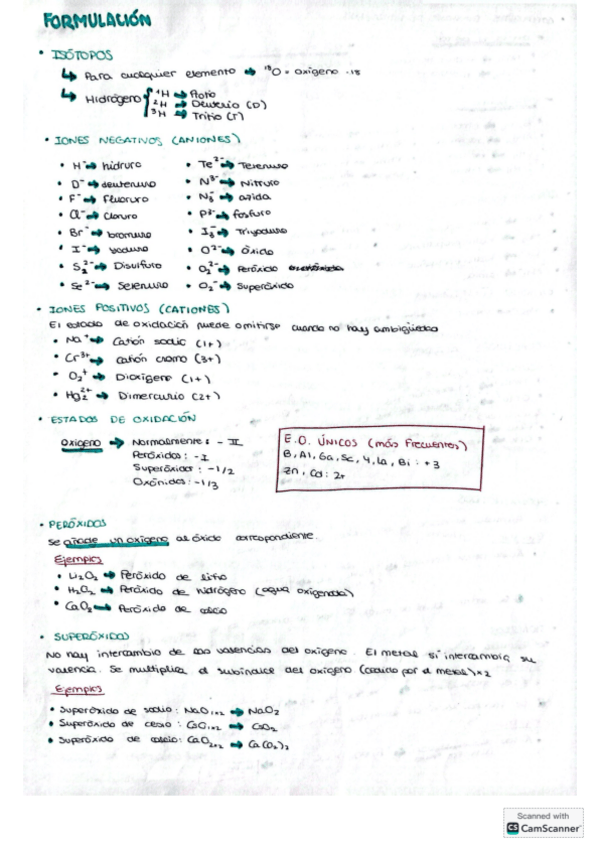 FORMULACIÓN
• ISÓTOPOS
↳ Para cualquier elemento → ¹⁸O = oxígeno -18
↳ Hidrógeno { ¹H → Protio
²H → Deuterio (D)
³H → Tritio (T)
• IONES NEGATIVOS (ANIONES)
• H⁻ → hidruro
• D⁻ → deuteruro
• F⁻ → Fluoruro
• Cl⁻ → Cloruro
• Br⁻ → bromuro
• I⁻ → yoduro
• S₂²⁻ → Disulfuro
• Se²⁻ → Seleniuro
• Te²⁻ → Telenuro
• N³⁻ → Nitruro
• N₃⁻ → azida
• P³⁻ → fosfuro
• I₃⁻ → Triyoduro
• O²⁻ → Óxido
• O₂²⁻ → Peróxido
• O₂⁻ → Superóxido
• IONES POSITIVOS (CATIONES)
El estado de oxidación puede omitirse cuando no hay ambigüedad
• Na⁺ → Catión sodio (1+)
• Cr³⁺ → catión cromo (3+)
• O₂⁺ → Dioxígeno (1+)
• Hg₂²⁺ → Dimercurio (2+)
• ESTADOS DE OXIDACIÓN
oxígeno → Normalmente: -II
Peróxidos: -I
Superóxidos: -1/2
Ozónidos: -1/3
E.O. ÚNICOS (más frecuentes)
B, Al, Ga, Sc, Y, La, Bi: +3
Zn, Cd: 2+
• PERÓXIDOS
Se añade un oxígeno al óxido correspondiente.
Ejemplos
• Li₂O₂ → Peróxido de litio
• H₂O₂ → Peróxido de hidrógeno (agua oxigenada)
• CaO₂ → Peróxido de calcio
• SUPERÓXIDOS
No hay intercambio de las valencias del oxígeno. El metal sí intercambia su
valencia. Se multiplica el subíndice del oxígeno (cedido por el metal) × 2
Ejemplos
• Superóxido de sodio: NaO₁ₓ₂ → NaO₂
• Superóxido de cesio: CsO₁ₓ₂ → CsO₂
• Superóxido de calcio: CaO₂ₓ₂ → Ca(O₂)₂
Scanned with
CS CamScanner